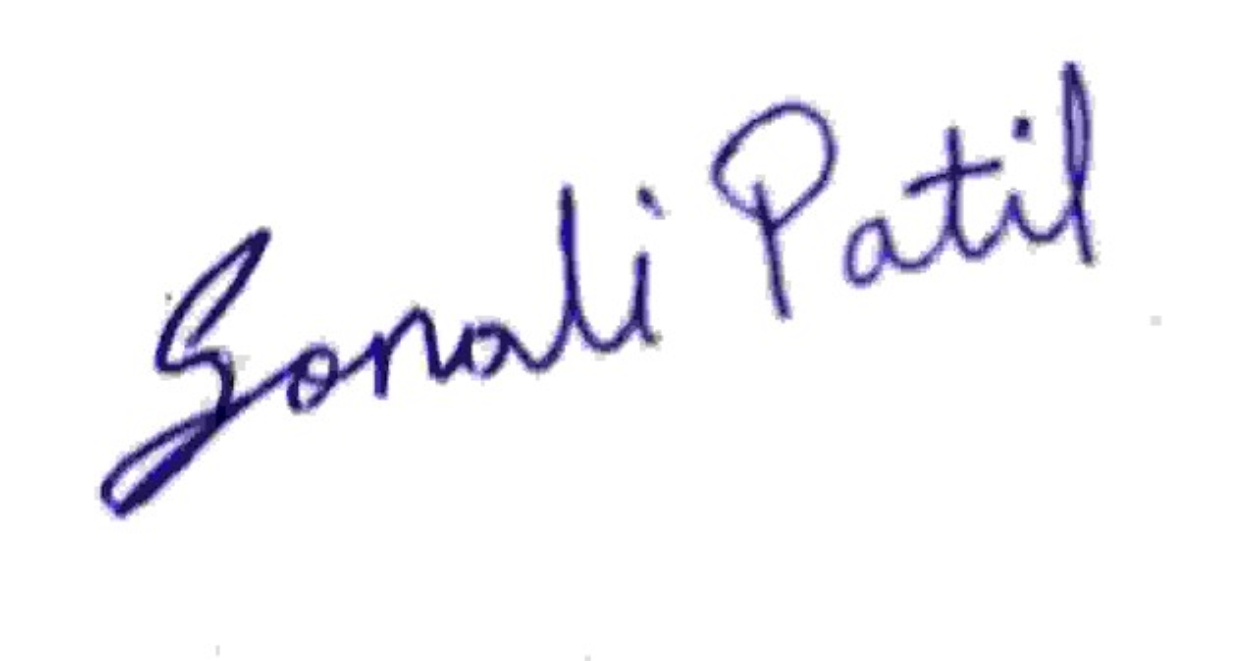 Sonali Patil